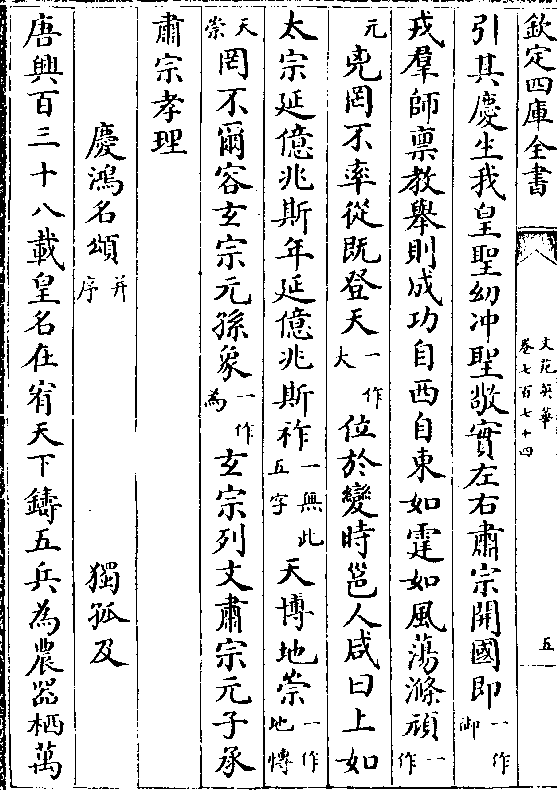 欽定四庫全書
文苑英華
卷七百七十四
五
引其慶生我皇聖幼冲聖敬實左右肅宗開國即一作御
戎羣師禀教舉則成功自西自東如霆如風蕩滌頑一作
元兇罔不率從既登天一作大位於變時邕人咸曰上如
太宗延億兆斯年延億兆斯祚一無此五字天博地崇一作地愽
天崇罔不爾容玄宗元孫象一作為玄宗列文肅宗元子承
肅宗孝理
慶鴻名頌并序
獨孤及
唐興百三十八載皇名在宥天下鑄五兵為農器栖萬